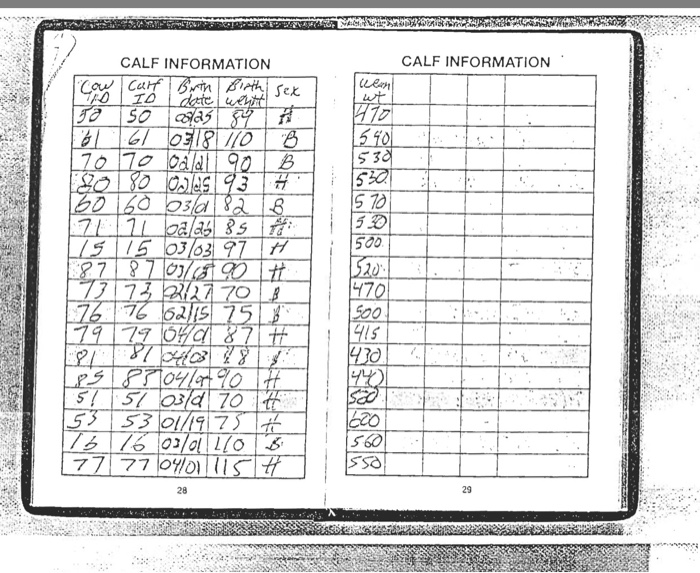 CALF INFORMATION
Cow ID Calf ID Birth date Birth weight Sex
50 50 02/25 89 H
61 61 03/18 110 B
70 70 02/21 90 B
80 80 02/25 93 H
60 60 03/01 82 B
71 71 02/26 85 H
15 15 03/03 97 H
87 87 90 H
73 73 02/27 70 B
76 76 02/15 75 B
79 79 04/01 87 H
81 81 04/03 88 B
85 85 90 H
51 51 03/01 70 H
53 53 01/19 75 H
16 16 03/01 110 B
77 77 04/01 115 H
28
CALF INFORMATION
wean wt
470
540
530
530
570
530
500
520
470
500
415
430
440
520
620
560
550
29